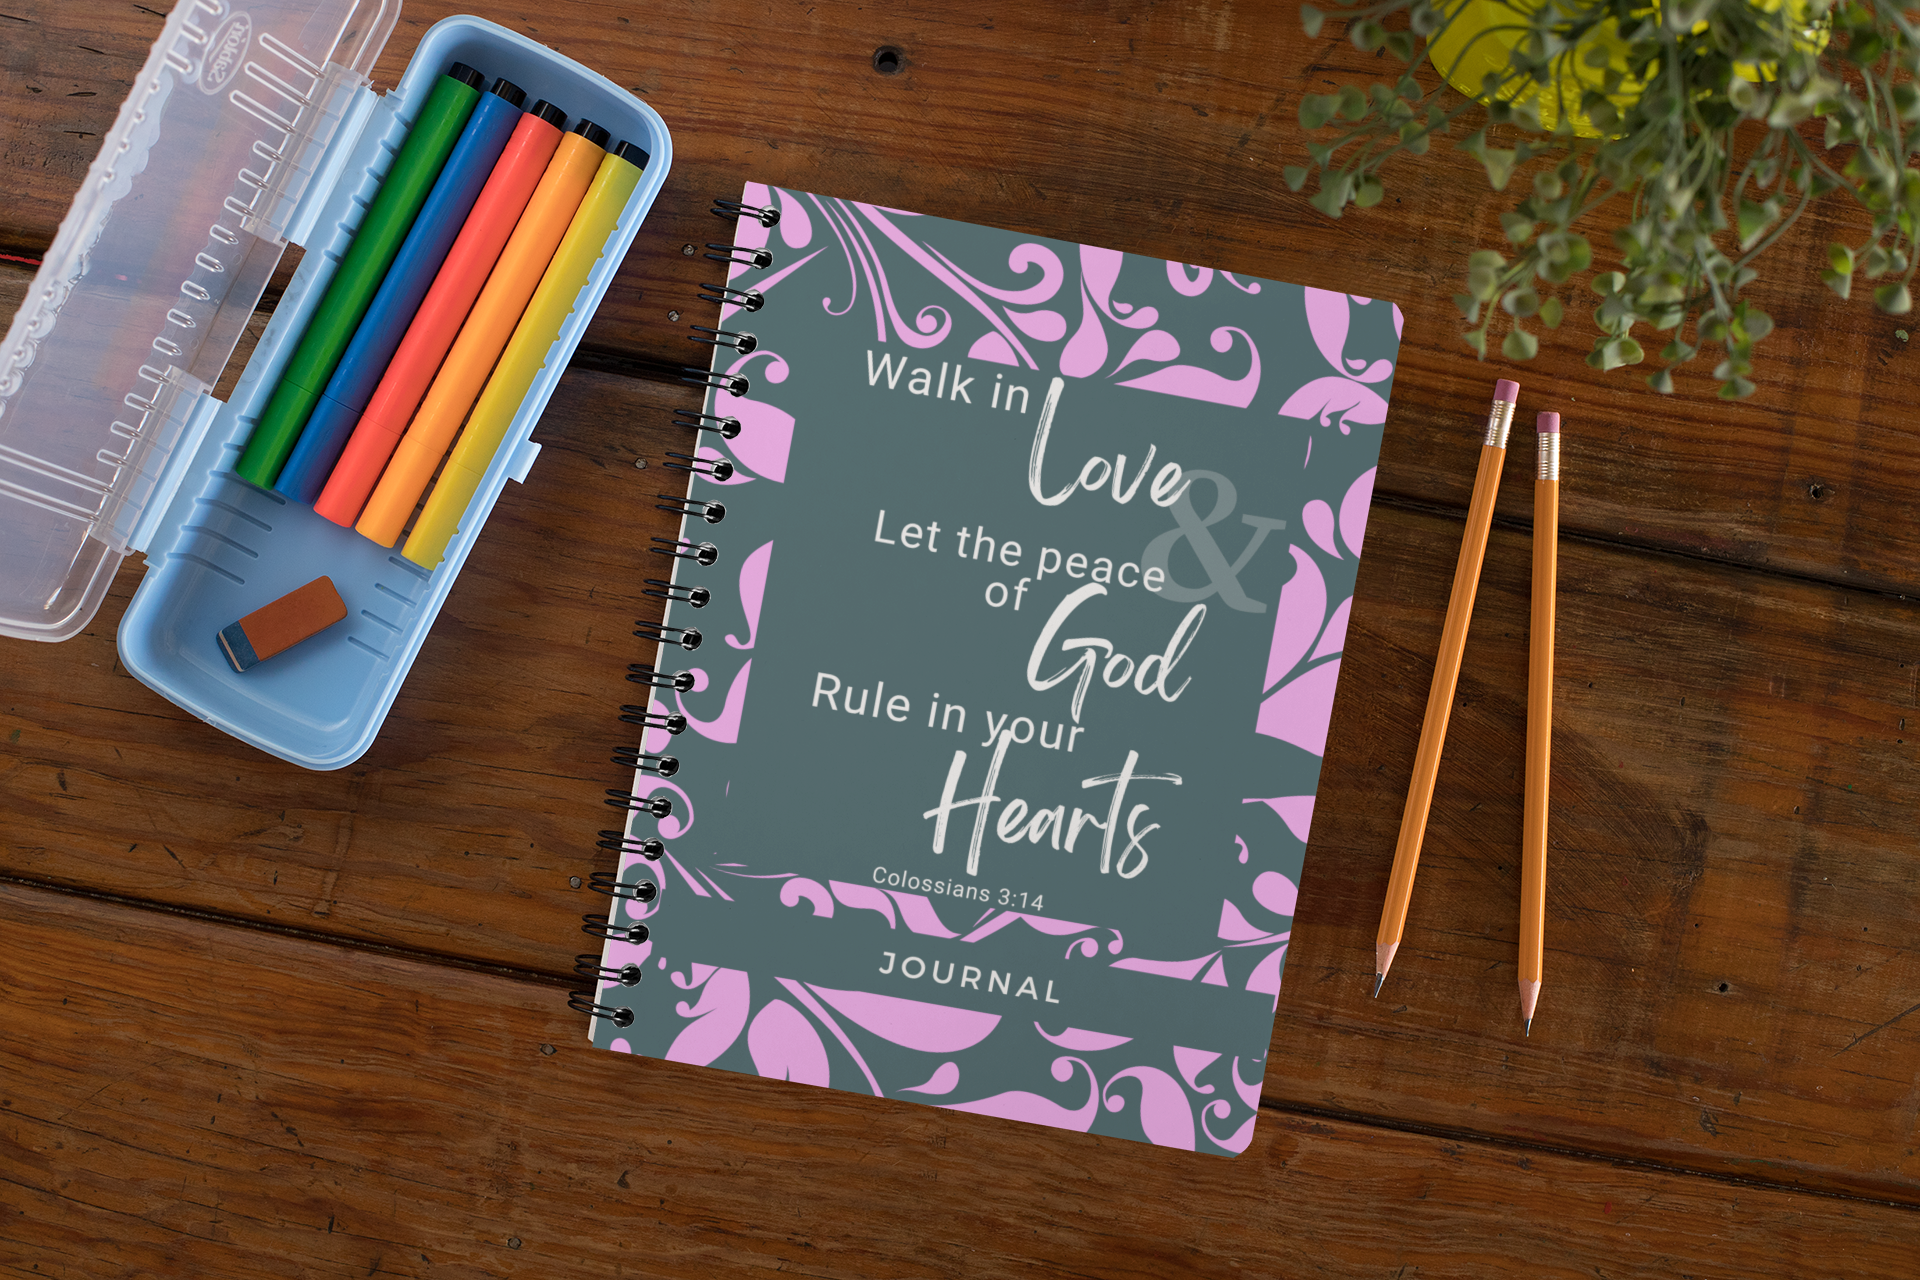 Walk in
Love
&
Let the peace
of God
Rule in your
Hearts
Colossians 3:14
JOURNAL